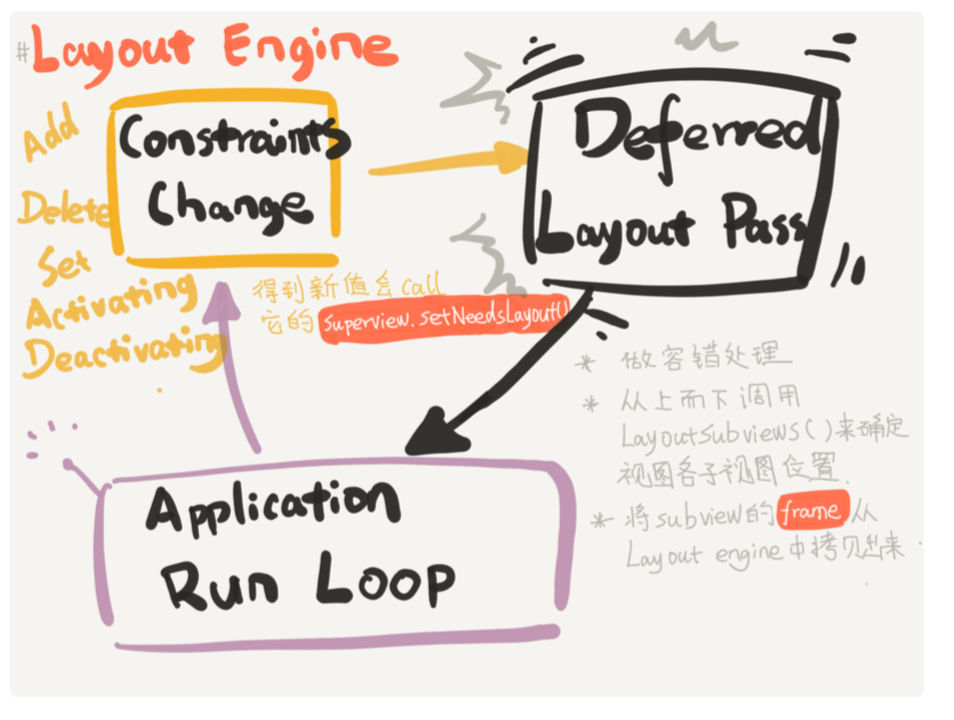 # Layout Engine
Add
Delete
Set
Activating
Deactivating
Constraints
Change
Deferred
Layout Pass
得到新值会call
它的 superview.setNeedsLayout()
* 做容错处理
* 从上而下调用
LayoutSubviews()来确定
视图各子视图位置
* 将subview的 frame 从
Layout engine中拷贝出来.
Application
Run Loop